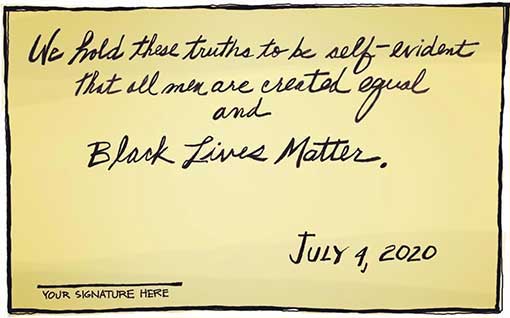 We hold these truths to be self-evident
that all men are created equal
and
Black Lives Matter.
JULY 4, 2020
YOUR SIGNATURE HERE